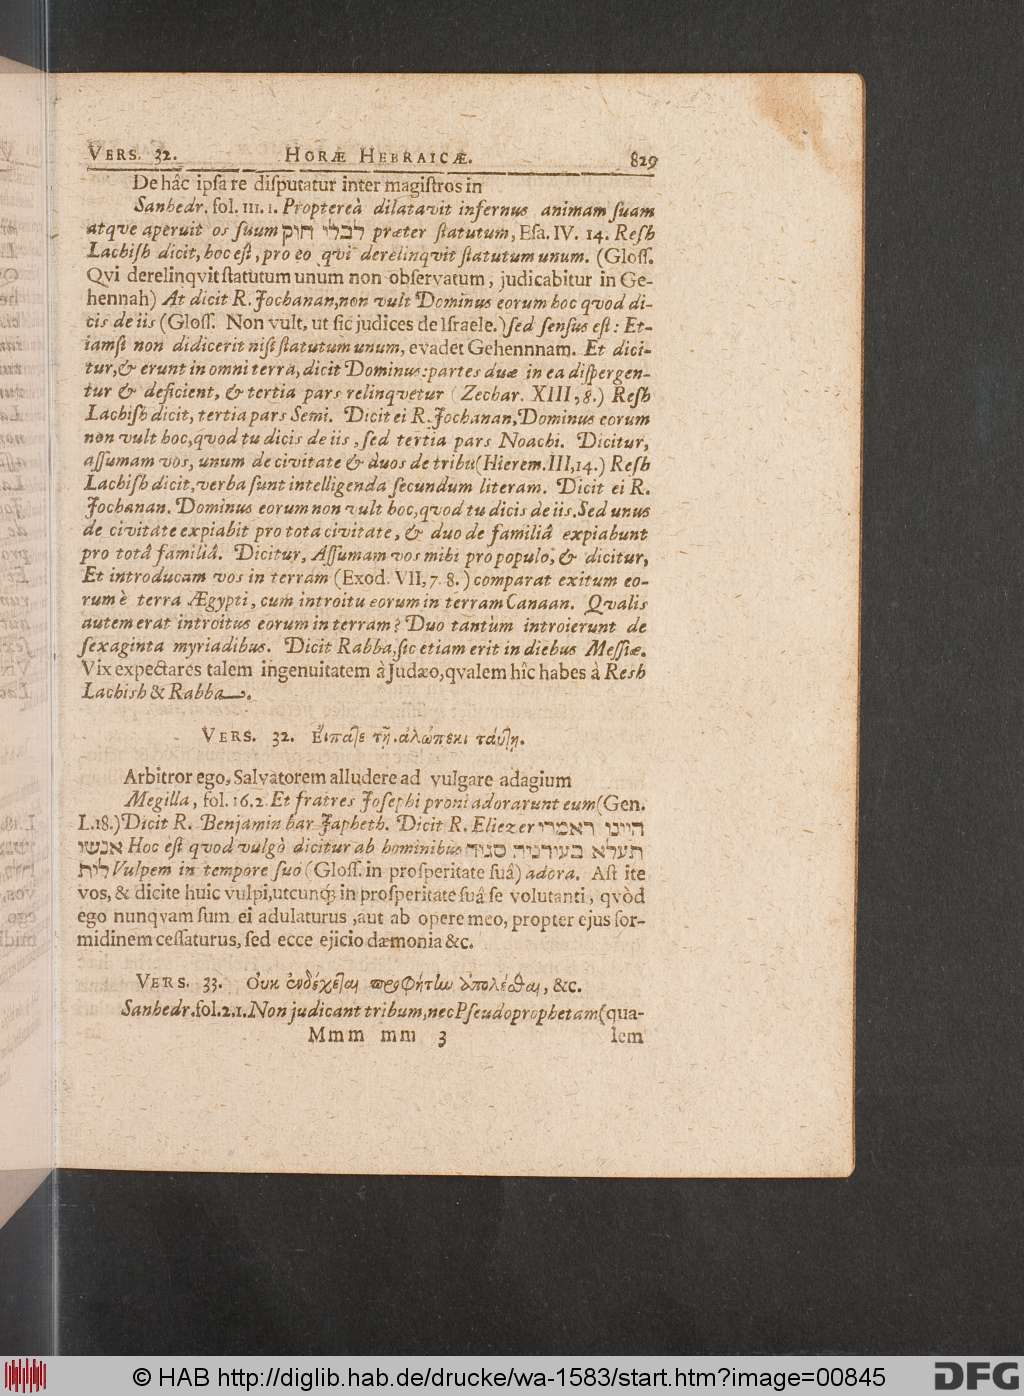 VERS. 32. HORÆ HEBRAICÆ. 829
De hâc ipsa re disputatur inter magistros in
Sanhedr. fol. 111. 1. Proptereà dilatavit infernus animam suam
atqve aperuit os suum לבלי חוק præter statutum, Esa. IV. 14. Resh
Lachish dicit, hoc est, pro eo qvi derelinqvit statutum unum. (Gloss.
Qvi derelinqvit statutum unum non observatum, judicabitur in Ge-
hennah) At dicit R. Jochanan, non vult Dominus eorum hoc qvod di-
cis de iis (Gloss. Non vult, ut sic judices de Israele.) sed sensus est: Et-
iamsi non didicerit nisi statutum unum, evadet Gehennnam. Et dici-
tur, & erunt in omni terra, dicit Dominus: partes duæ in ea dispergen-
tur & deficient, & tertia pars relinqvetur (Zechar. XIII, 8.) Resh
Lachish dicit, tertia pars Semi. Dicit ei R. Jochanan, Dominus eorum
non vult hoc, qvod tu dicis de iis, sed tertia pars Noachi. Dicitur,
assumam vos, unum de civitate & duos de tribu (Hierem. III, 14.) Resh
Lachish dicit, verba sunt intelligenda secundum literam. Dicit ei R.
Jochanan. Dominus eorum non vult hoc, qvod tu dicis de iis. Sed unus
de civitate expiabit pro tota civitate, & duo de familiâ expiabunt
pro totâ familiâ. Dicitur, Assumam vos mihi pro populo, & dicitur,
Et introducam vos in terram (Exod. VII, 7. 8.) comparat exitum eo-
rum è terra Ægypti, cum introitu eorum in terram Canaan. Qvalis
autem erat introitus eorum in terram? Duo tantùm introierunt de
sexaginta myriadibus. Dicit Rabba, sic etiam erit in diebus Messiæ.
Vix expectares talem ingenuitatem à Judæo, qvalem hîc habes à Resh
Lachish & Rabba.
VERS. 32. Εἴπατε τῇ ἀλώπεκι ταύτῃ.
Arbitror ego, Salvatorem alludere ad vulgare adagium
Megilla, fol. 16. 2. Et fratres Josephi proni adorarunt eum (Gen.
L. 18.) Dicit R. Benjamin bar Japheth. Dicit R. Eliezer היינו דאמרי
אנשי Hoc est qvod vulgò dicitur ab hominibus תעלא בעידניה סגיד
ליה Vulpem in tempore suo (Gloss. in prosperitate suâ) adora. Ast ite
vos, & dicite huic vulpi, utcunq; in prosperitate suâ se volutanti, qvòd
ego nunqvam sum ei adulaturus, aut ab opere meo, propter ejus for-
midinem cessaturus, sed ecce ejicio dæmonia &c.
VERS. 33. Οὐκ ἐνδέχεται προφήτην ἀπολέσθαι, &c.
Sanhedr. fol. 2. 1. Non judicant tribum, nec Pseudoprophetam (qua-
Mmm mm 3 lem
© HAB http://diglib.hab.de/drucke/wa-1583/start.htm?image=00845 DFG